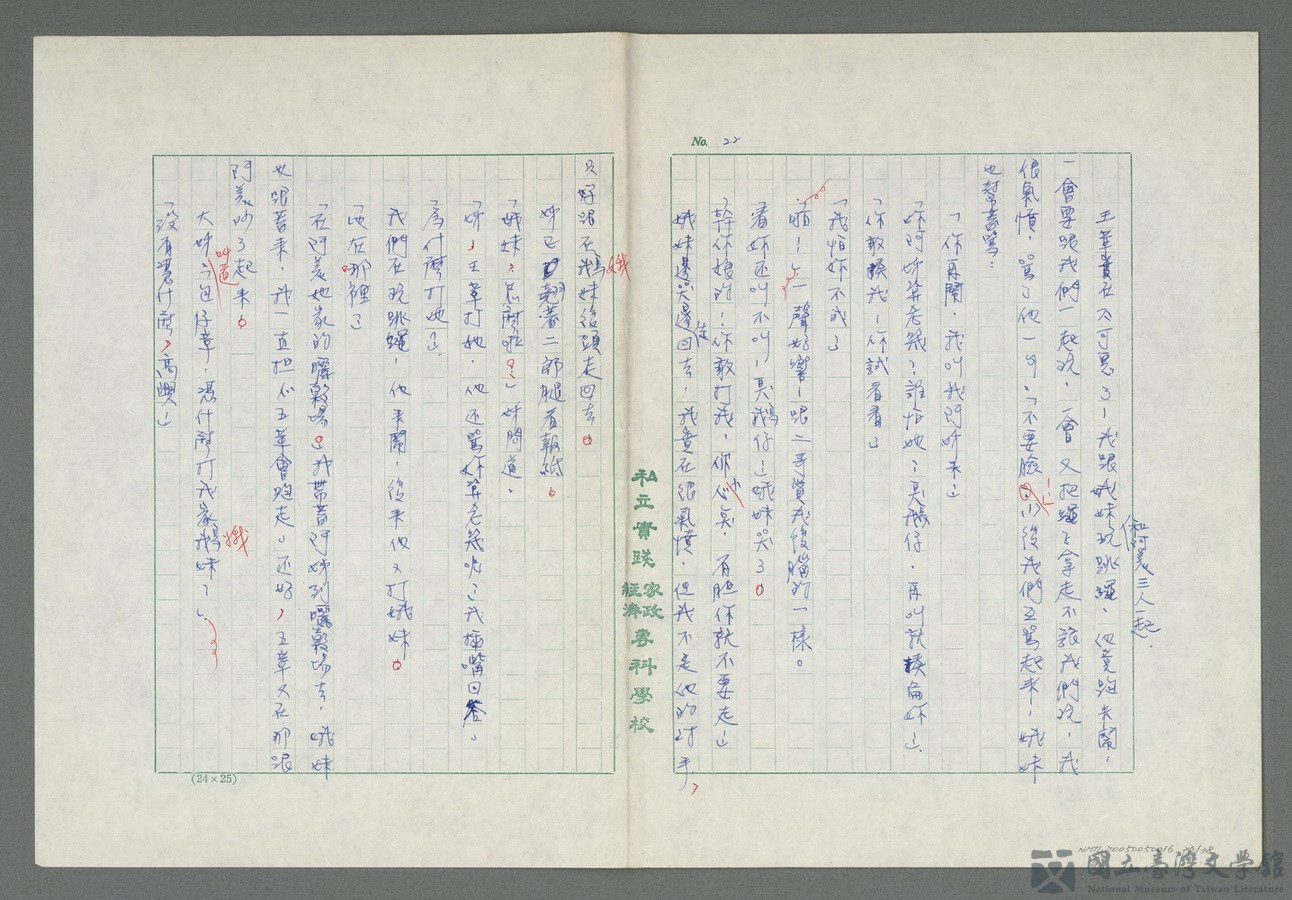 No. 22
王章實在太可惡了！我跟娥妹玩跳繩，他竟跑來鬧，
和阿美三人一起
一會要跟我們一起玩，一會又把繩子拿走不讓我們玩，我
很氣憤，罵了他一句：「不要臉！」後我們互罵起來，娥妹
也幫著罵：
「你再鬧，我叫我阿姊來！」
「妳阿姊算老幾？誰怕她？臭鵝仔，再叫就揍侖妳！」
「你敢揍我！你試看看」
「我怕妳不成」
「啪！」一聲好響！跟二哥賞我後腦的一樣。
「看妳還叫不叫！臭鵝仔！」娥妹哭了。
「幹你娘的！你敢打我，你小心哭，有胆你就不要走！」
娥妹邊哭邊往回去，我實在很氣憤，但我不是他的對手，
只好跟在娥妹後頭走回去。
姊正翹著二郎腿看報紙。
「娥妹，怎麼啦？」姊問道。
「姊，王章打她，他還罵妳算老幾呢！」我插嘴回答。
「為什麼打她？」
「我們在玩跳繩，他來鬧，後來他又打娥妹。
「他在哪裡」
「在阿美她家的曬穀場。」我帶著阿姊到曬穀場去，娥妹
也跟著來，我一直担心王章會跑走。還好，王章又在那跟
阿美吵了起來。
大姊叫道「包仔章，憑什麼打我家娥妹？」
「沒有憑什麼，高興！」
(24×25)
私立實踐家政經濟專科學校
NMTL20050050016
國立臺灣文學館
National Museum of Taiwan Literature